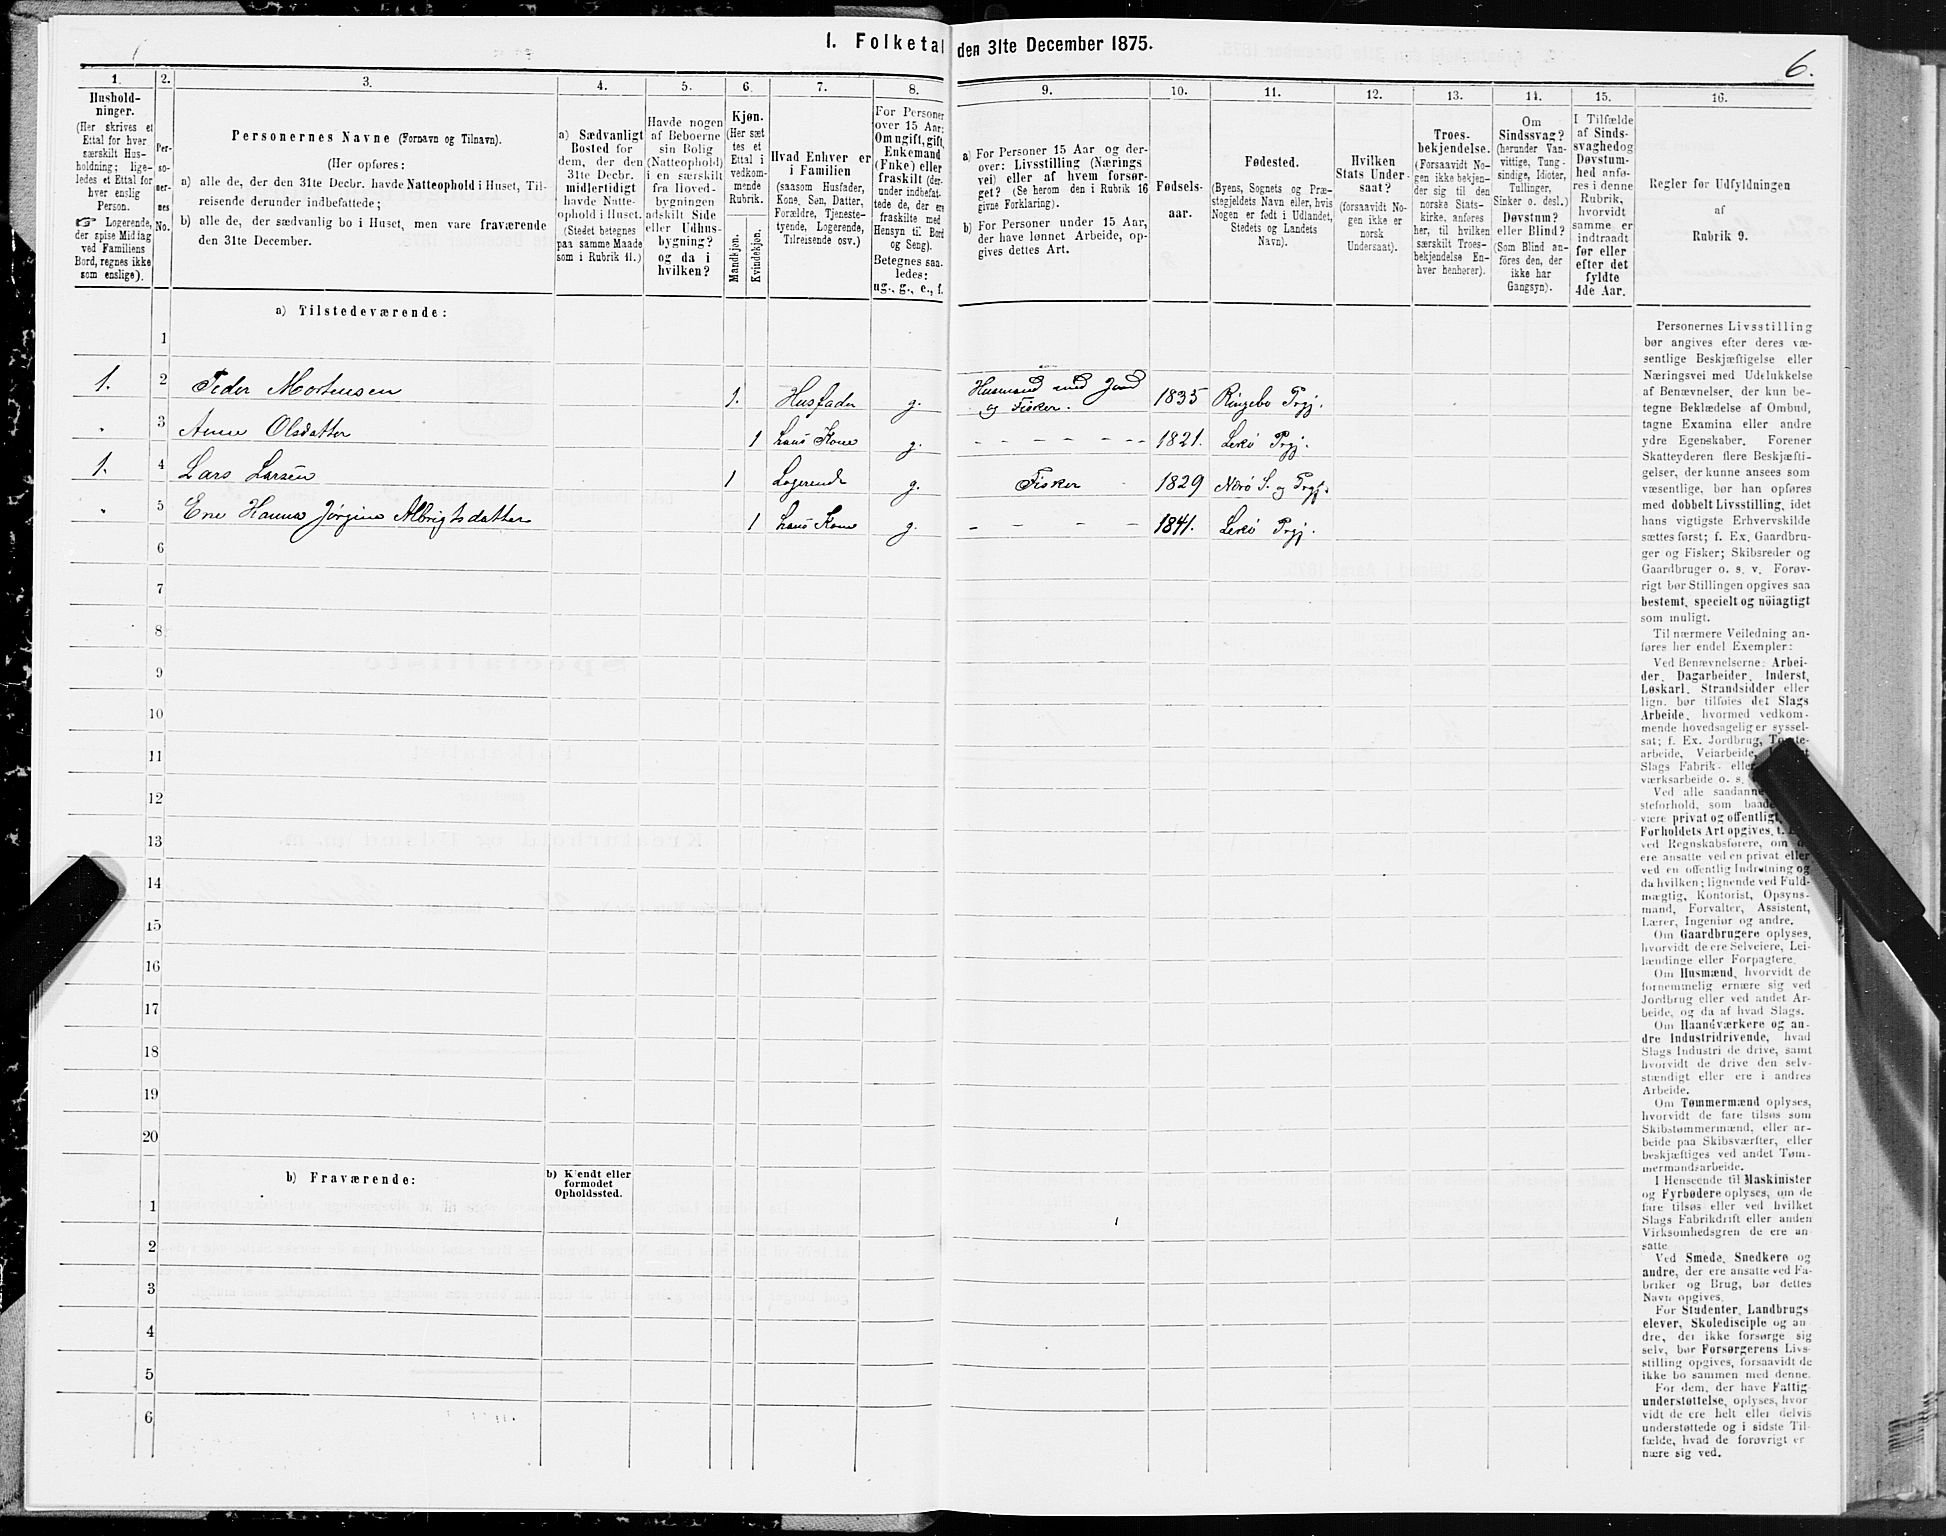 I. Folketal den 31te December 1875.
6.
1. 2. 3. 4. 5. 6. 7. 8. 9. 10. 11. 12. 13. 14. 15. 16.
Hushold-
ninger.
(Her skrives et
Ettal for hver
særskilt Hus-
holdning; lige-
ledes et Ettal for
hver enslig
Person.
☞ Logerende,
der spise Middag
ved Familiens
Bord, regnes ikke
som enslige).
Per-
so-
ner-
nes
No.
Personernes Navne (Fornavn og Tilnavn).
(Her opføres:
a) alle de, der den 31te Decbr. havde Natteophold i Huset, Til-
reisende derunder indbefattede;
b) alle de, der sædvanlig bo i Huset, men vare fraværende
den 31te December.
a) Sædvanligt
Bosted for
dem, der den
31te Decbr.
midlertidigt
havde Natte-
ophold i Huset.
(Stedet betegnes
paa samme Maade
som i Rubrik 11.)
Havde nogen
af Beboerne
sin Bolig
(Natteophold)
i en særskilt
fra Hoved-
bygningen
adskilt Side
eller Udhus-
bygning?
og da i
hvilken?
Kjøn.
(Her sæt
tes et
Ettal i
vedkom-
mende
Rubrik.
Mandkjøn.
Kvindekjøn.
Hvad Enhver er
i Familien
(saasom Husfader,
Kone, Søn, Datter,
Forældre, Tjeneste-
tyende, Logerende,
Tilreisende osv.)
For Personer
over 15 Aar:
Om ugift, gift,
Enkemand
(Enke) eller
fraskilt (der-
under indbefat-
tede de, der ere
fraskilte med
Hensyn til Bord
og Seng).
Betegnes saa-
ledes:
ug., g., e., f.
a) For Personer 15 Aar og der-
over: Livsstilling (Nærings
vei) eller af hvem forsør-
get? (Se herom den i Rubrik 16
givne Forklaring).
b) For Personer under 15 Aar,
der have lønnet Arbeide, op-
gives dettes Art.
Fødsels-
aar.
Fødested.
(Byens, Sognets og Præ-
stegjeldets Navn eller, hvis
Nogen er født i Udlandet,
Stedets og Landets
Navn).
Hvilken
Stats Under-
saat?
(forsaavidt No-
gen ikke er
norsk
Undersaat).
Troes-
bekjendelse.
(Forsaavidt No-
gen ikke bekjen-
der sig til den
norske Stats-
kirke, anføres
her, til hvilken
særskilt Troes-
bekjendelse En-
hver henhører).
Om
Sindssvag?
(herunder Van-
vittige, Tung-
sindige, Idioter,
Tullinger,
Sinker o. desl.)
Døvstum?
eller Blind?
(Som Blind an-
føres den, der
ikke har
Gangsyn).
I Tilfælde
af Sinds-
svaghed og
Døvstum-
hed anfø-
res i denne
Rubrik,
hvorvidt
samme er
indtraadt
før eller
efter det
fyldte
4de Aar.
Regler for Udfyldningen
af
Rubrik 9.
a) Tilstedeværende:
1
1. 2 Peder Mortensen 1. Husfader g. Husmand med Jord
og Fisker. 1835 Ringebo Prgj.
" 3 Anne Olsdatter 1 hans Kone g. - - - - - - - 1821. Lekø Prgj.
1. 4 Lars Larsen 1 Logerende g. Fisker 1829 Nærø S. og Prgj.
" 5 Ene Hanna Jørgine Albrigtsdatter 1 hans Kone g. - - - 1841. Lekø Prgj.
6
7
8
9
10
11
12
13
14
15
16
17
18
19
20
b) Fraværende:
b) Kjendt eller
formodet
Opholdssted.
1
2
3
4
5
6
Personernes Livsstilling
bør angives efter deres væ-
sentlige Beskjæftigelse eller
Næringsvei med Udelukkelse
af Benævnelser, der kun be-
tegne Beklædelse af Ombud,
tagne Examina eller andre
ydre Egenskaber. Forener
Skatteyderen flere Beskjæfti-
gelser, der kunne ansees som
væsentlige, bør han opføres
med dobbelt Livsstilling, idet
hans vigtigste Erhvervskilde
sættes først; f. Ex. Gaardbru-
ger og Fisker; Skibsreder og
Gaardbruger o. s. v. Forøv-
rigt bør Stillingen opgives saa
bestemt, specielt og nöiagtigt
som muligt.
Til nærmere Veiledning an-
føres her endel Exempler:
Ved Benævnelserne: Arbei-
der, Dagarbeider, Inderst,
Løskarl, Strandsidder eller
lign. bør tilføies det Slags
Arbeide, hvormed vedkom-
mende hovedsagelig er syssel-
sat; f. Ex. Jordbrug, Tomte-
arbeide, Veiarbeide,
Slags Fabrik- eller
værksarbeide o. s.
Ved alle saadanne
steforhold, som baade
være privat og offentligt,
Forholdets Art opgives, t.
ved Regnskabsførere, om
ere ansatte ved en privat eller
ved en offentlig Indretning og
da hvilken; lignende ved Fuld-
mægtig, Kontorist, Opsyns-
mand, Forvalter, Assistent,
Lærer, Ingeniør og andre.
Om Gaardbrugere oplyses,
hvorvidt de ere Selveiere, Lei-
lændinge eller Forpagtere.
Om Husmænd, hvorvidt de
fornemmelig ernære sig ved
Jordbrug eller ved andet Ar-
beide, og da af hvad Slags.
Om Haandværkere og an-
dre Industridrivende, hvad
Slags Industri de drive, samt
hvorvidt de drive den selv-
stændigt eller ere i andres
Arbeide.
Om Tømmermænd oplyses,
hvorvidt de fare tilsøs som
Skibstømmermænd, eller ar-
beide paa Skibsværfter, eller
beskjæftiges ved andet Tøm-
mermandsarbeide.
I Henseende til Maskinister
og Fyrbødere oplyses, om de
fare tilsøs eller ved hvilket
Slags Fabrikdrift eller anden
Virksomhedsgren de ere an-
satte.
Ved Smede, Snedkere og
andre, der ere ansatte ved Fa-
briker og Brug, bør dettes
Navn opgives.
For Studenter, Landbrugs-
elever, Skoledisciple og an-
dre, der ikke forsørge sig
selv, bør Forsørgerens Livs-
stilling opgives, forsaavidt de
ikke bo sammen med denne.
For dem, der have Fattig-
understøttelse, oplyses, hvor-
vidt de ere helt eller delvis
understøttede og i sidste Til-
fælde, hvad de forøvrigt er-
nære sig ved.